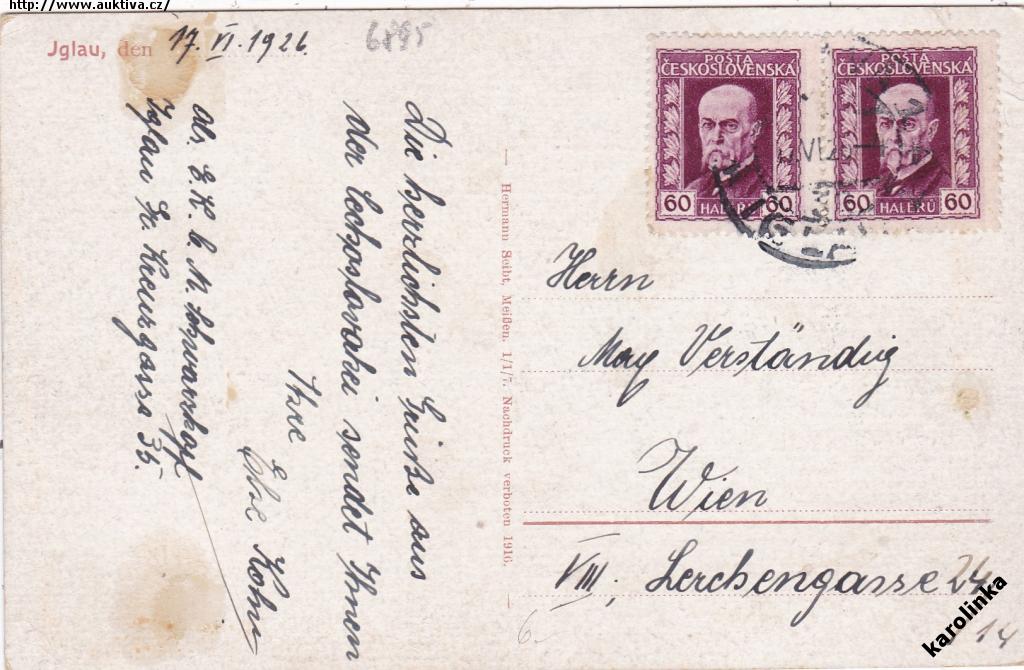 http://www.auktiva.cz/
Jglau, den 17. VI. 1926.
6895
Die herrlichsten Grüße aus
der Čechoslovakei sendet Ihnen
Ihre
Kohn
Abs. E. K. b. M. Schwarzkopf
Iglau Kreuzgasse 35.
— Hermann Seibt, Meißen. 1/1/7. Nachdruck verboten 1916. —
POŠTA
ČESKOSLOVENSKÁ
60 HALÉŘŮ 60
POŠTA
ČESKOSLOVENSKÁ
60 HALÉŘŮ 60
Herrn
Max Verständig
Wien
VIII, Lerchengasse 24
14
6.
karolinka